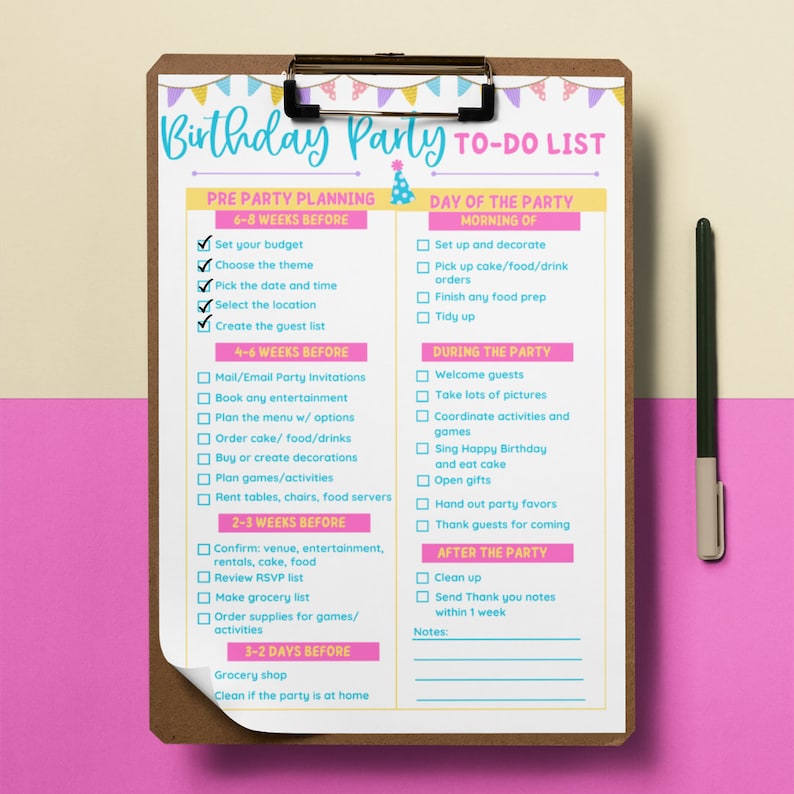 Birthday Party TO-DO LIST
PRE PARTY PLANNING
6-8 WEEKS BEFORE
Set your budget
Choose the theme
Pick the date and time
Select the location
Create the guest list
4-6 WEEKS BEFORE
Mail/Email Party Invitations
Book any entertainment
Plan the menu w/ options
Order cake/ food/drinks
Buy or create decorations
Plan games/activities
Rent tables, chairs, food servers
2-3 WEEKS BEFORE
Confirm: venue, entertainment,
rentals, cake, food
Review RSVP list
Make grocery list
Order supplies for games/
activities
3-2 DAYS BEFORE
Grocery shop
Clean if the party is at home
DAY OF THE PARTY
MORNING OF
Set up and decorate
Pick up cake/food/drink
orders
Finish any food prep
Tidy up
DURING THE PARTY
Welcome guests
Take lots of pictures
Coordinate activities and
games
Sing Happy Birthday
and eat cake
Open gifts
Hand out party favors
Thank guests for coming
AFTER THE PARTY
Clean up
Send Thank you notes
within 1 week
Notes: